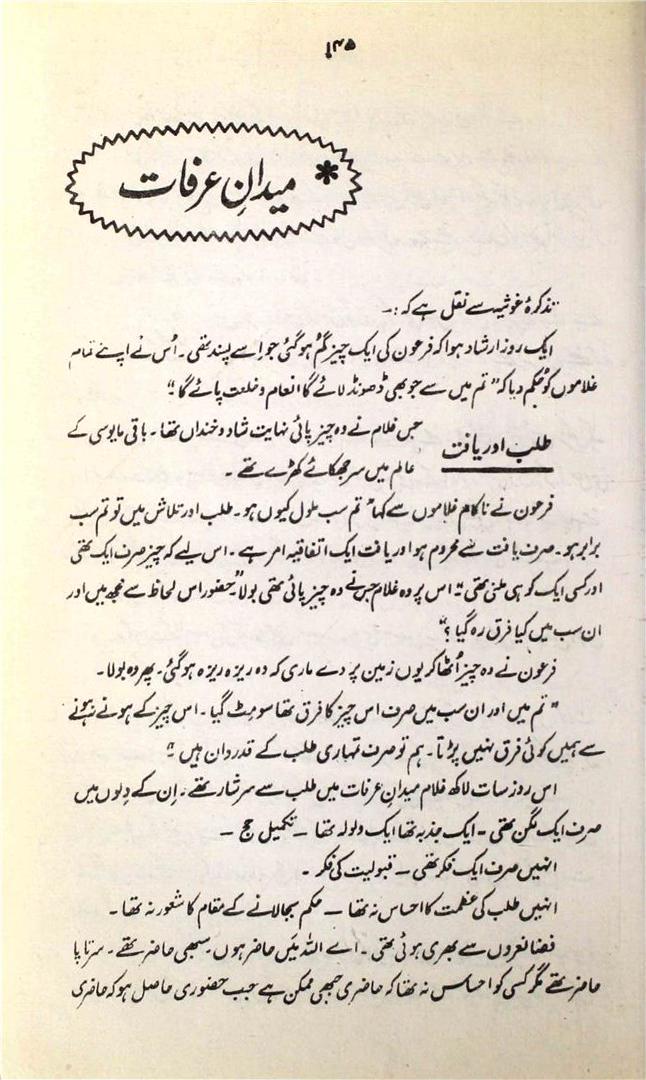 * میدانِ عرفات
تذکرۂ غوثیہ سے نقل ہے کہ :۔
ایک روز ارشاد ہوا کہ فرعون کی ایک چیز گم ہو گئی جو اسے پسند تھی۔ اُس نے اپنے تمام
غلاموں کو حکم دیا کہ "تم میں سے جو بھی ڈھونڈ لائے گا انعام و خلعت پائے گا۔"
طلب اور یافت
جس غلام نے وہ چیز پائی نہایت شاد و خنداں تھا۔ باقی مایوسی کے
عالم میں سر جھکائے کھڑے تھے۔
فرعون نے ناکام غلاموں سے کہا "تم سب ملول کیوں ہو۔ طلب اور تلاش میں تو تم سب
برابر ہو۔ صرف یافت سے محروم ہو اور یافت ایک اتفاقیہ امر ہے۔ اس لیے کہ چیز صرف ایک تھی
اور کسی ایک کو ہی ملنی تھی۔" اس پر وہ غلام جس نے وہ چیز پائی تھی بولا "حضور اس لحاظ سے مجھ میں اور
ان سب میں کیا فرق رہ گیا؟"
فرعون نے وہ چیز اُٹھا کر یوں زمین پر دے ماری کہ وہ ریزہ ریزہ ہو گئی۔ پھر وہ بولا۔
"تم میں اور ان سب میں صرف اس چیز کا فرق تھا سو مِٹ گیا۔ اس چیز کے ہونے نہ ہونے
سے ہمیں کوئی فرق نہیں پڑتا۔ ہم تو صرف تمہاری طلب کے قدردان ہیں۔"
اس روز سات لاکھ غلام میدانِ عرفات میں طلب سے سرشار تھے۔ اِن کے دِلوں میں
صرف ایک لگن تھی۔ ایک جذبہ تھا ایک ولولہ تھا – تکمیل حج –
انہیں صرف ایک فکر تھی – قبولیت کی فکر۔
انہیں طلب کی عظمت کا احساس نہ تھا – حکم بجا لانے کے مقام کا شعور نہ تھا۔
فضا نعروں سے بھری ہوئی تھی۔ اے اللہ میں حاضر ہوں۔ سبھی حاضر تھے۔ سرتاپا
حاضر تھے مگر کسی کو احساس نہ تھا کہ حاضری جبھی ممکن ہے جب حضوری حاصل ہو کہ حاضری